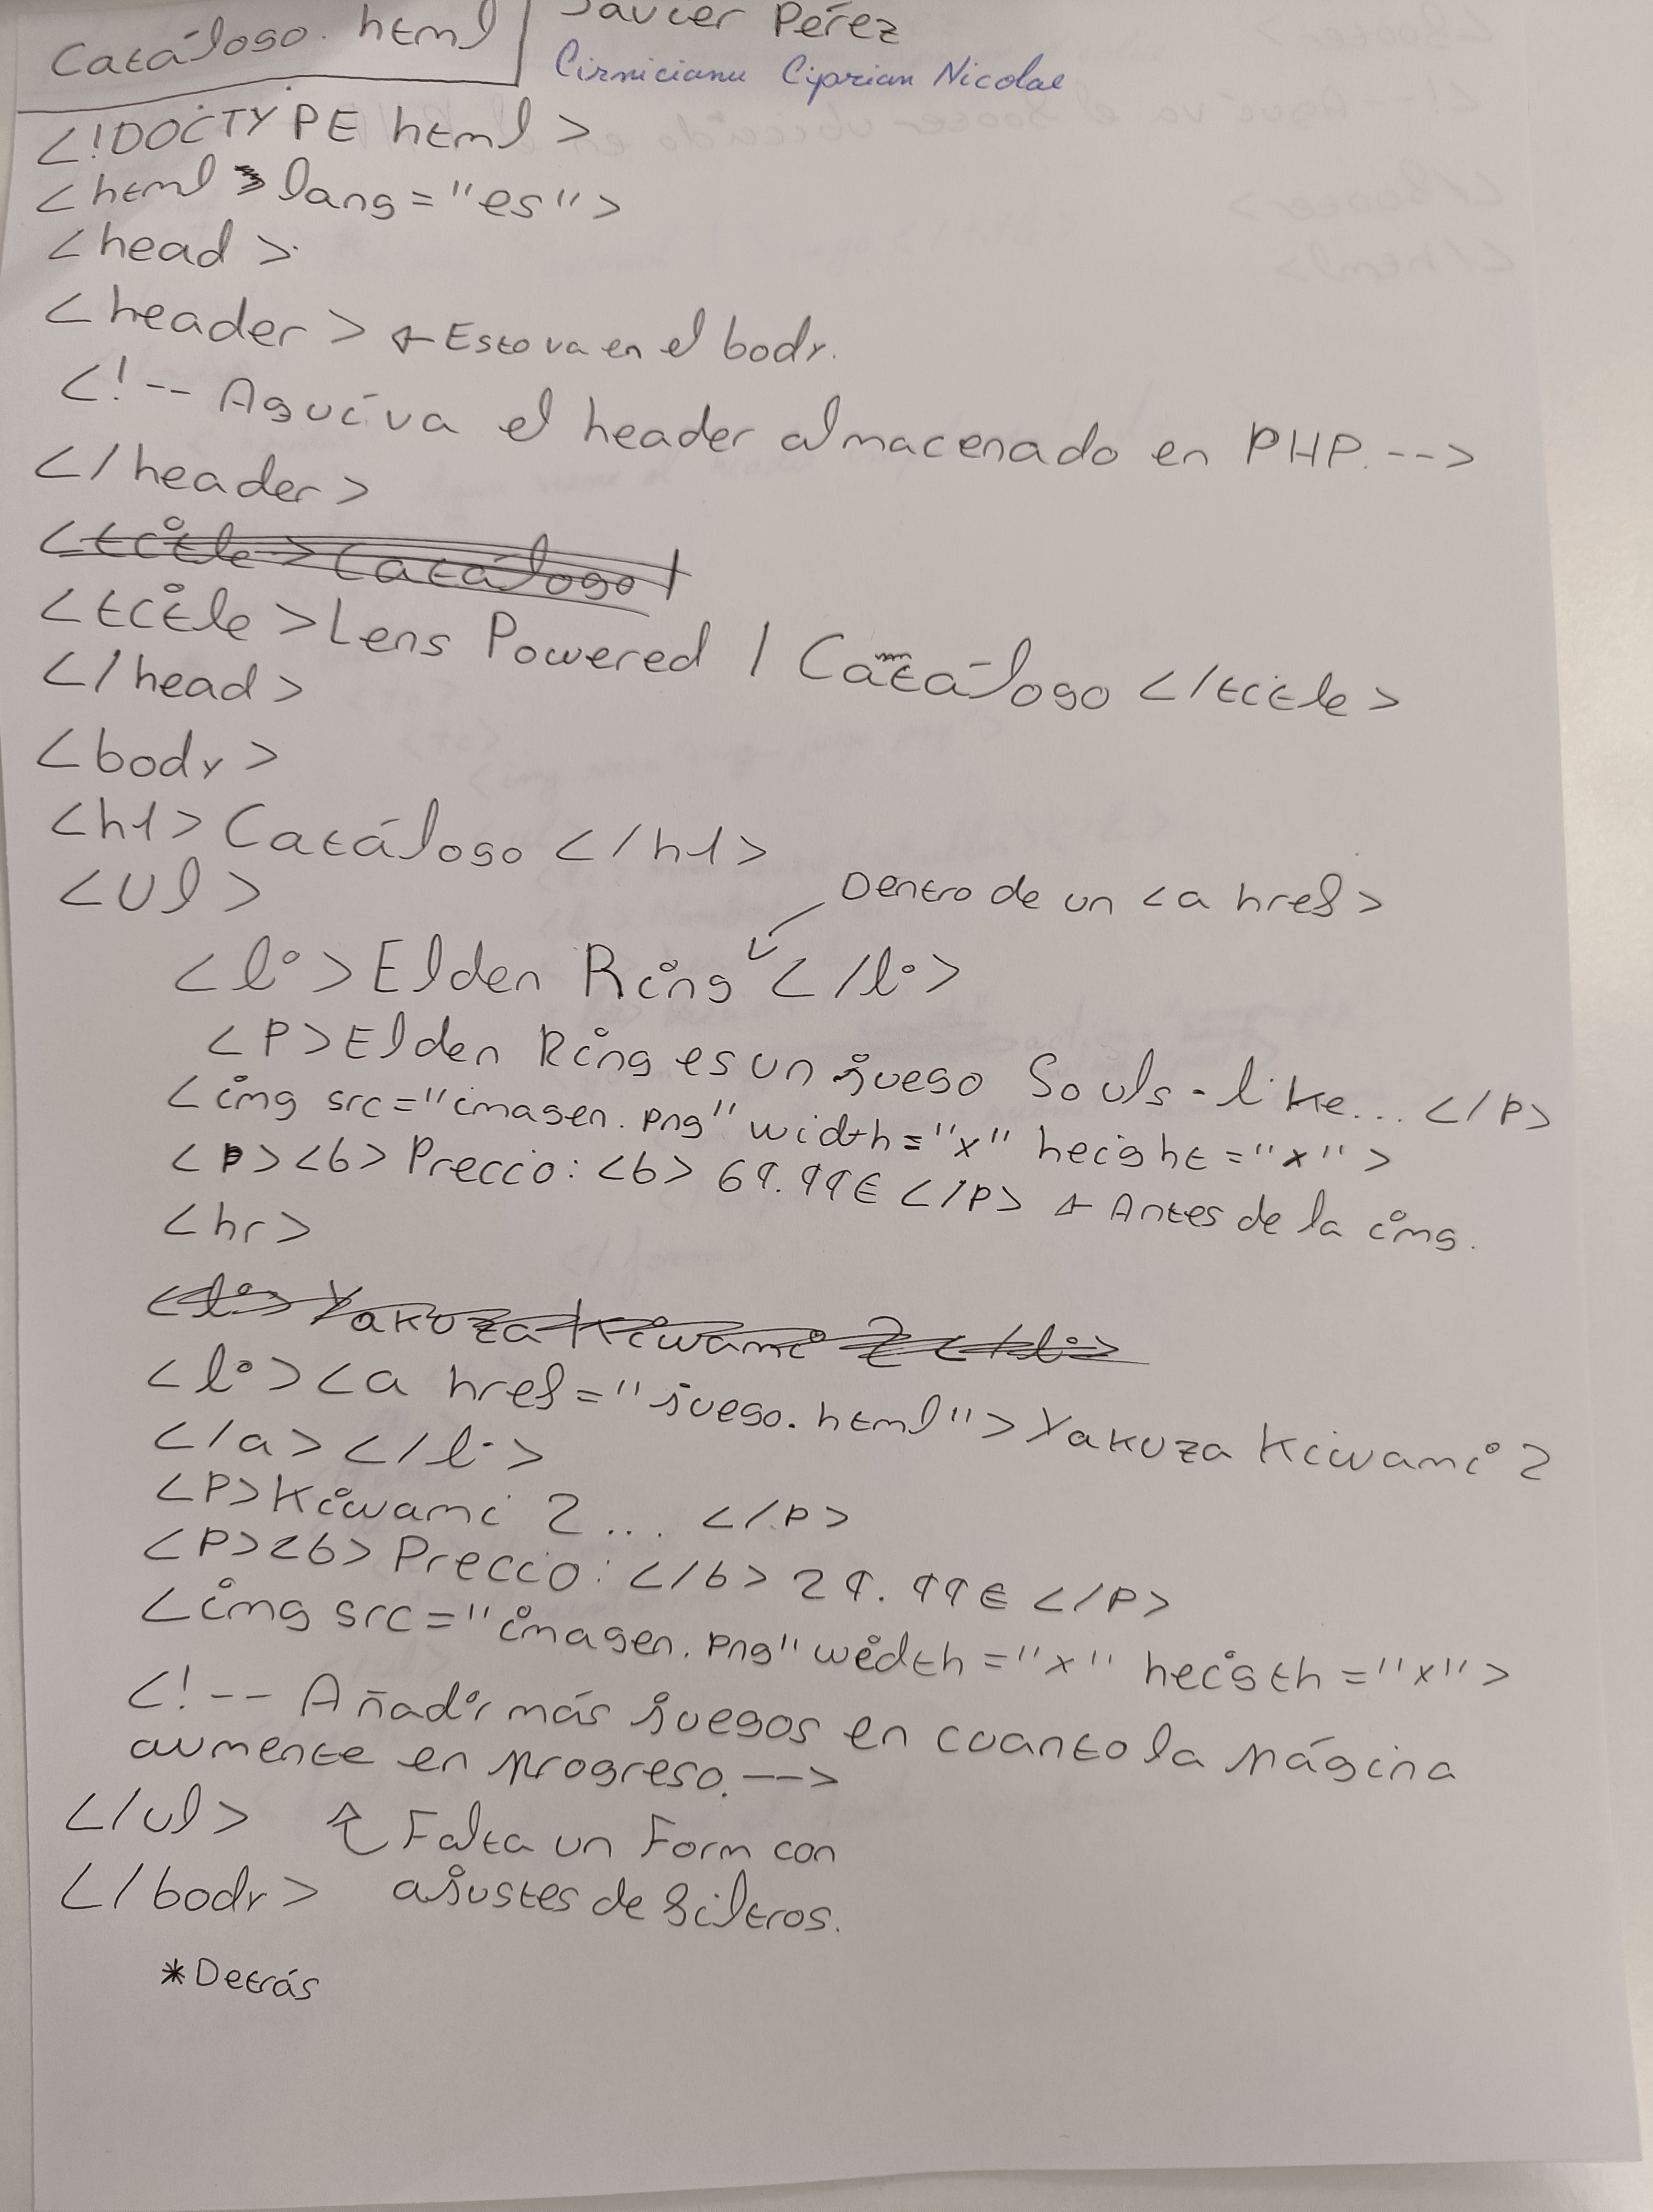 Catálogo.html
Javier Pérez
Cirnicianu Ciprian Nicolae
<!DOCTYPE html>
<html lang="es">
<head>
<header> ← Esto va en el body.
<!-- Aquí va el header almacenado en PHP. -->
</header>
<title>Catálogo |
<title>Lens Powered | Catálogo </title>
</head>
<body>
<h1>Catálogo</h1>
<ul>
Dentro de un <a href>
<li>Elden Ring</li>
<p>Elden Ring es un juego Souls-like... </p>
<img src="imagen.png" width="x" height="x">
<p><b>Precio:<b> 69.99€ </p> ← Antes de la img.
<hr>
<li>Yakuza Kiwami 2</li>
<li><a href="juego.html">Yakuza Kiwami 2
</a></li>
<p>Kiwami 2... </p>
<p><b>Precio:</b> 29.99€ </p>
<img src="imagen.png" width="x" heigth="x">
<!-- Añadir más juegos en cuanto la página
aumente en progreso. -->
</ul> ↑ Falta un Form con
</body> ajustes de filtros.
*Detrás
<footer>
<!-- Aquí va el footer ubicado en el
</footer>
</html>